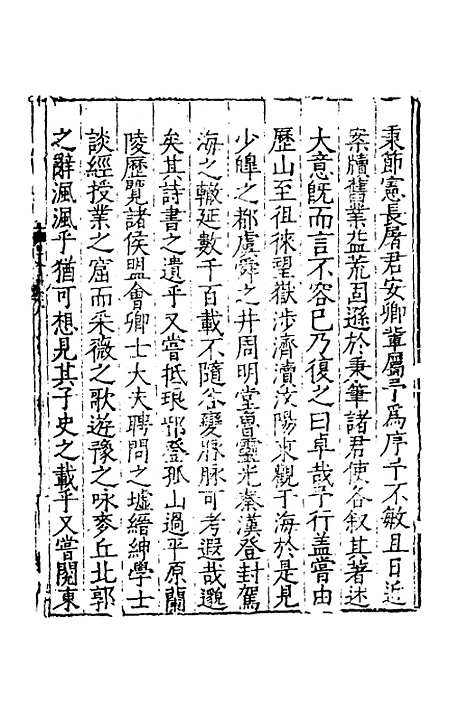 秉節憲長屠君安卿輩屬予為序予不敏且日近
案牘舊業益荒固遜於秉筆諸君使各叙其著述
大意既而言不容已乃復之曰卓哉予行盖嘗由
歷山至徂徠望嶽涉濟瀆汶陽東觀于海於是見
少皥之都虞舜之井周明堂魯靈光秦漢登封駕
海之轍延數千百載不隨谷變脉脉可考遐哉邈
矣其詩書之遺乎又嘗抵琅邪登孤山過平原蘭
陵歷覽諸侯盟會卿士大夫聘問之墟縉紳學士
談經授業之窟而采薇之歌遊豫之咏麥丘北郭
之辭渢渢乎猶可想見其子史之載乎又嘗閱東